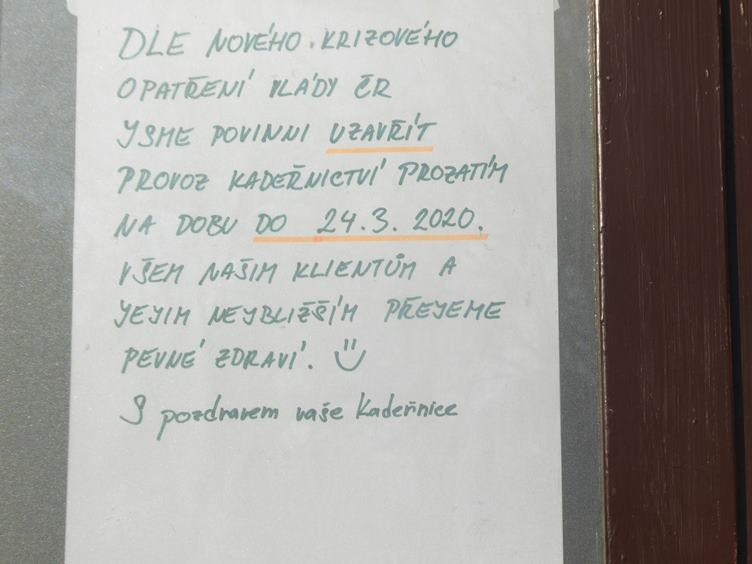 DLE NOVÉHO KRIZOVÉHO
OPATŘENÍ VLÁDY ČR
JSME POVINNI UZAVŘÍT
PROVOZ KADEŘNICTVÍ PROZATÍM
NA DOBU DO 24.3. 2020.
VŠEM NAŠIM KLIENTŮM A
JEJIM NEJBLIŽŠÍM PŘEJEME
PEVNÉ ZDRAVÍ.
S pozdravem vaše Kadeřnice